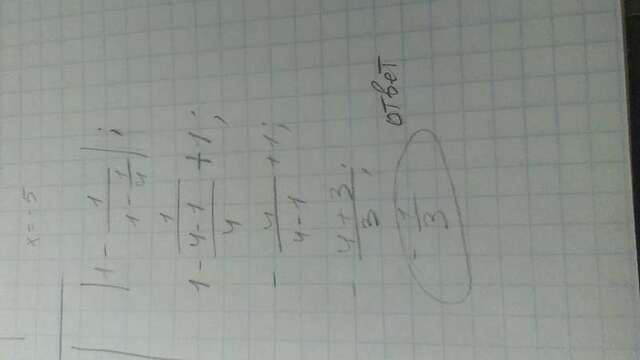 x = -5
|1 - 1/(1 - 1/4)|;
1/(1 - 4 - 1/4) + 1;
- 4/(4 - 1) + 1;
- (4 + 3)/3;
- 1/3 ответ